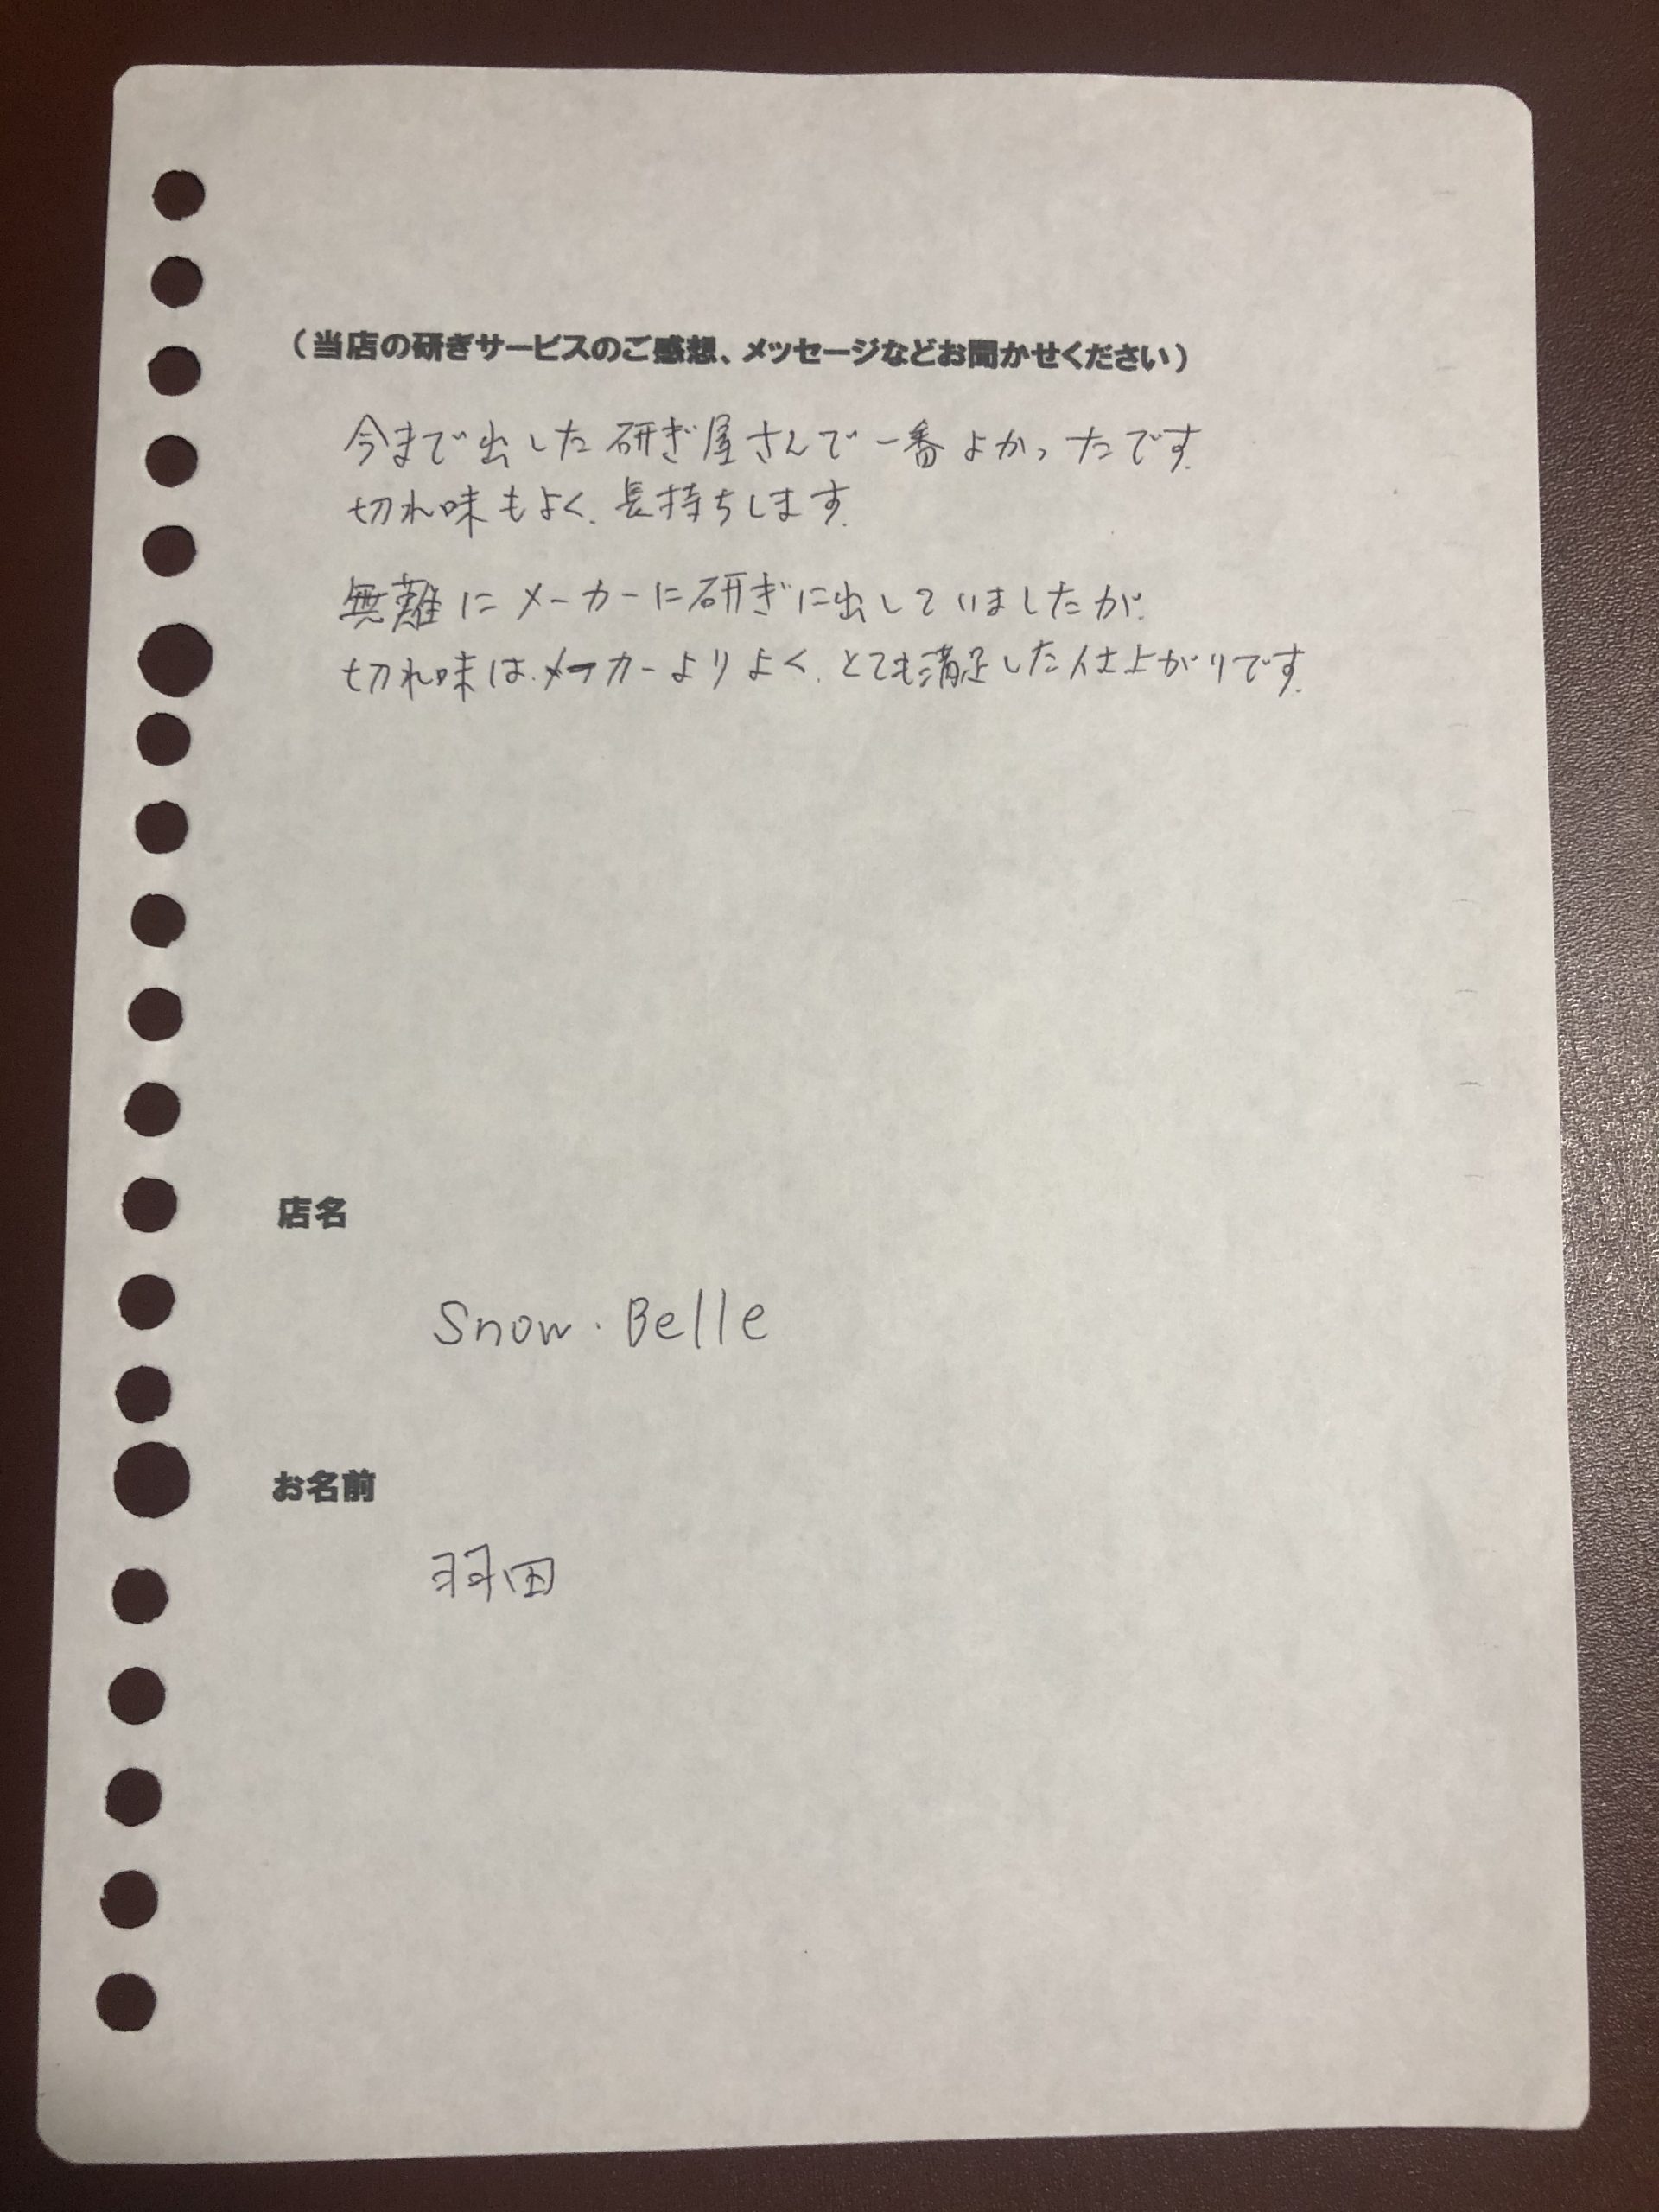 （当店の研ぎサービスのご感想、メッセージなどお聞かせください）
今まで出した研ぎ屋さんで一番よかったです。
切れ味もよく、長持ちします。
無難にメーカーに研ぎに出していましたが、
切れ味は、メーカーよりよく、とても満足した仕上がりです。
店名
Snow・Belle
お名前
羽田